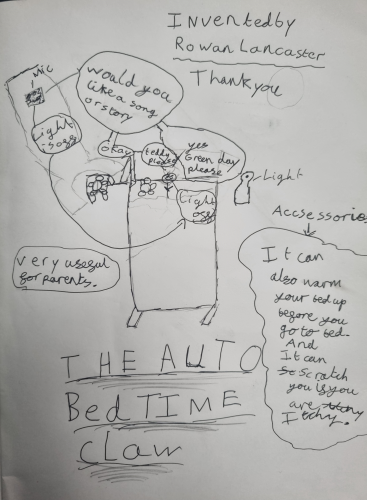 Inventedby
Rowan Lancaster
Thankyou
Mic
would you
like a song
or story
Light
is off
okay
teddy
please
yes
Green day
please
Light
Light
off
Accsessories
very useful
for parents.
It can
also warm
your bed up
before you
go to bed.
And
It can
scratch
you if you
are
Itchy.
THE AUTO
BedTIME
claw